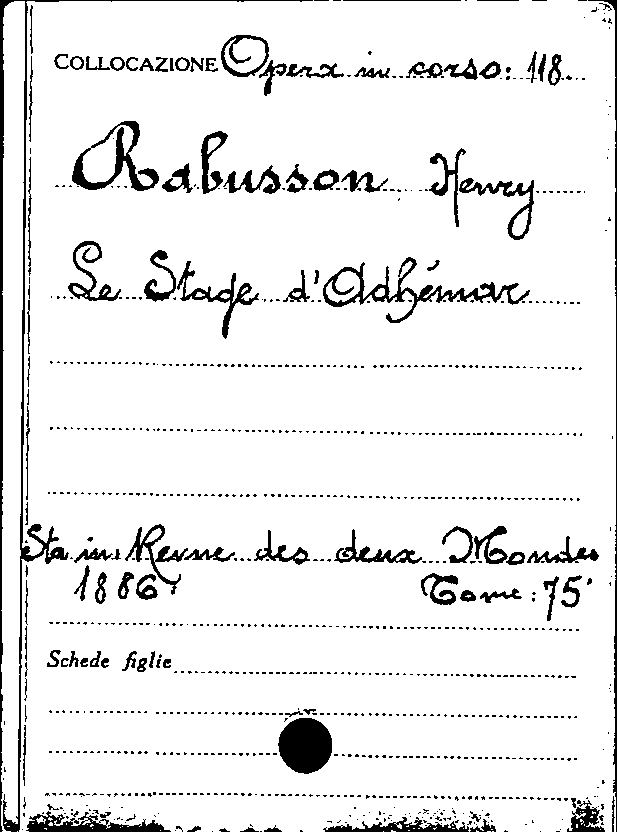 COLLOCAZIONE Opera in corso: 118.
Rabusson Henry
Le Stage d'Adhémar
Sta in: Revue des deux Mondes
1886 Tome: 75
Schede figlie